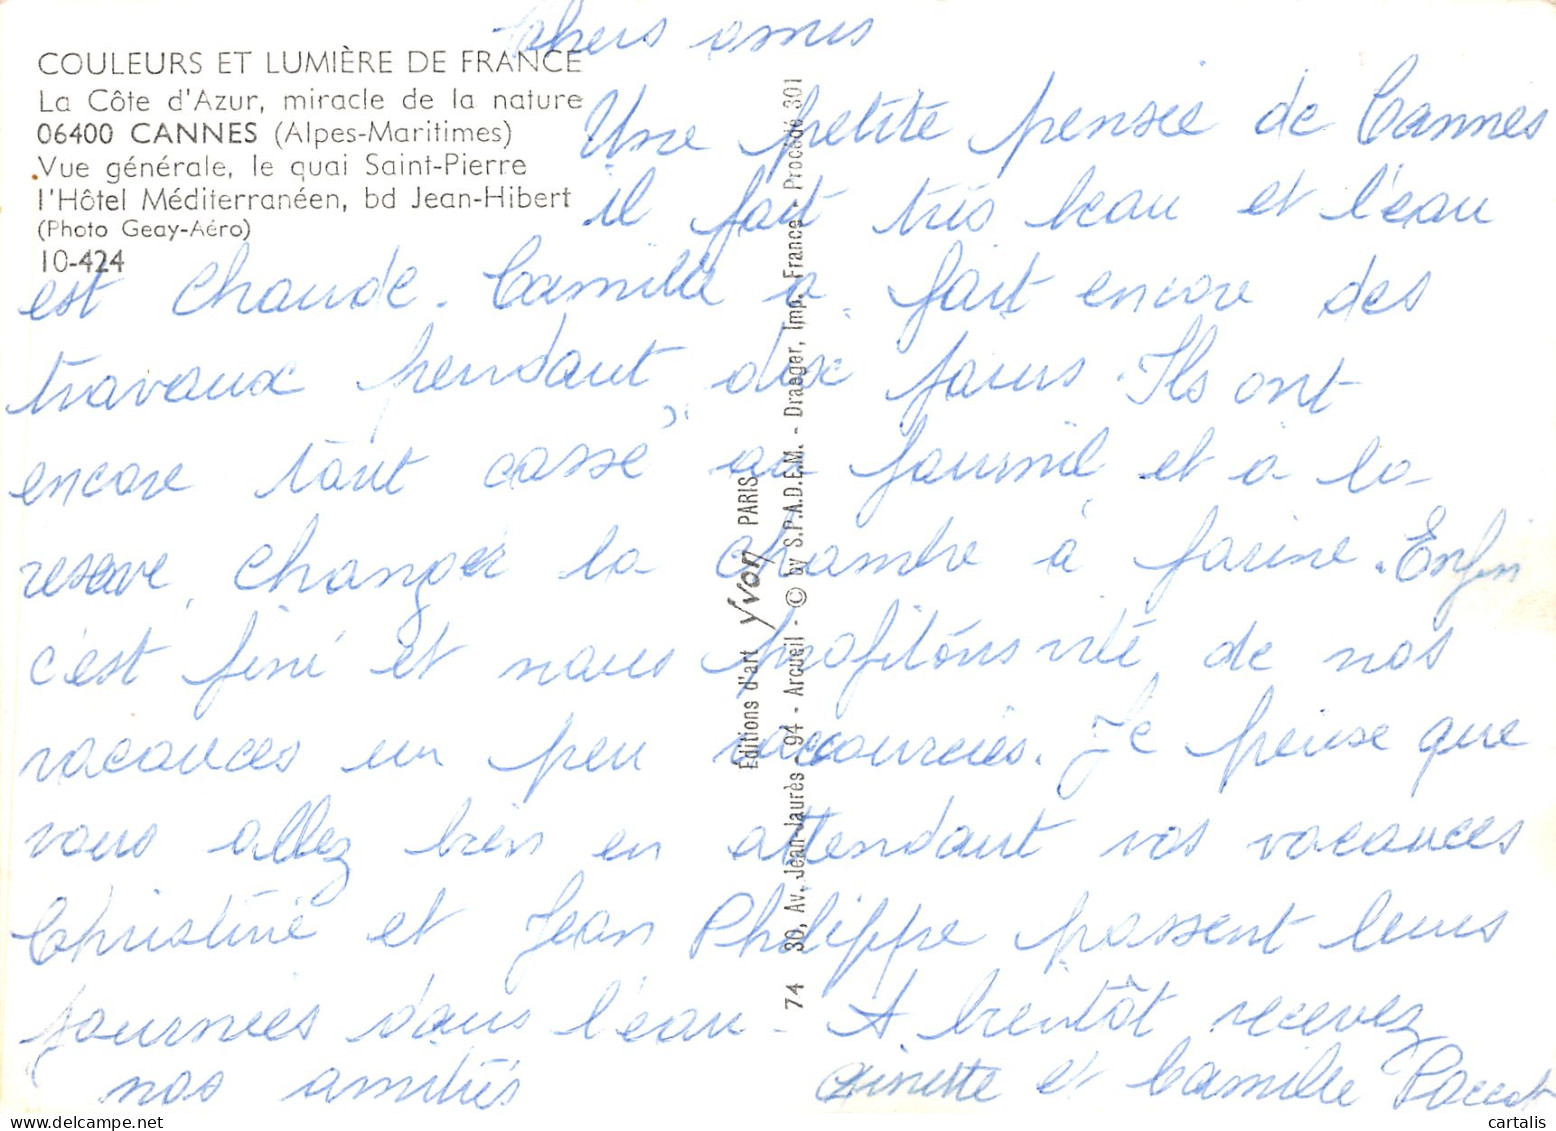 Chers amis
COULEURS ET LUMIÈRE DE FRANCE
La Côte d'Azur, miracle de la nature
06400 CANNES (Alpes-Maritimes)
Vue générale, le quai Saint-Pierre
l'Hôtel Méditerranéen, bd Jean-Hibert
(Photo Geay-Aéro)
10-424
Une petite pensée de Cannes
il fait très beau et l'eau
est chaude. Camille a fait encore des
travaux pendant dix jours. Ils ont
encore tout cassé au fournil et à la
reserve, changer la chambre à farine. Enfin
c'est fini et nous profitons de nos
vacances un peu raccourcies. Je pense que
vous allez bien en attendant vos vacances
Christine et Jean Philippe passent leurs
journées dans l'eau - A bientôt recevez
nos amitiés
Ginette et Camille
Editions d'art Yvon PARIS
74 30, Av. Jean-Jaurès - 94 - Arcueil - © by S.P.A.D.E.M. - Draeger, Imp. France - Procédé 301
cartalis